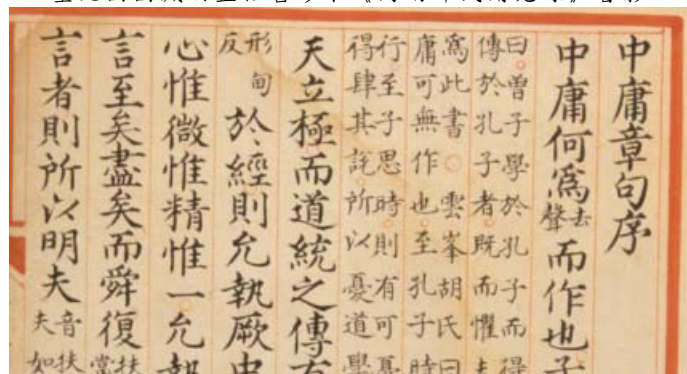 中庸章句序
中庸何爲去聲而作也子
曰曾子學於孔子而得
傳於孔子者既而懼夫
爲此書○雲峯胡氏曰
庸可無作也至孔子時
行至子思時則有可憂
得肆其說所以憂道學
天立極而道統之傳有
形甸反於經則允執厥中
心惟微惟精惟一允執
言至矣盡矣而舜復扶
言者則所以明夫音扶夫如